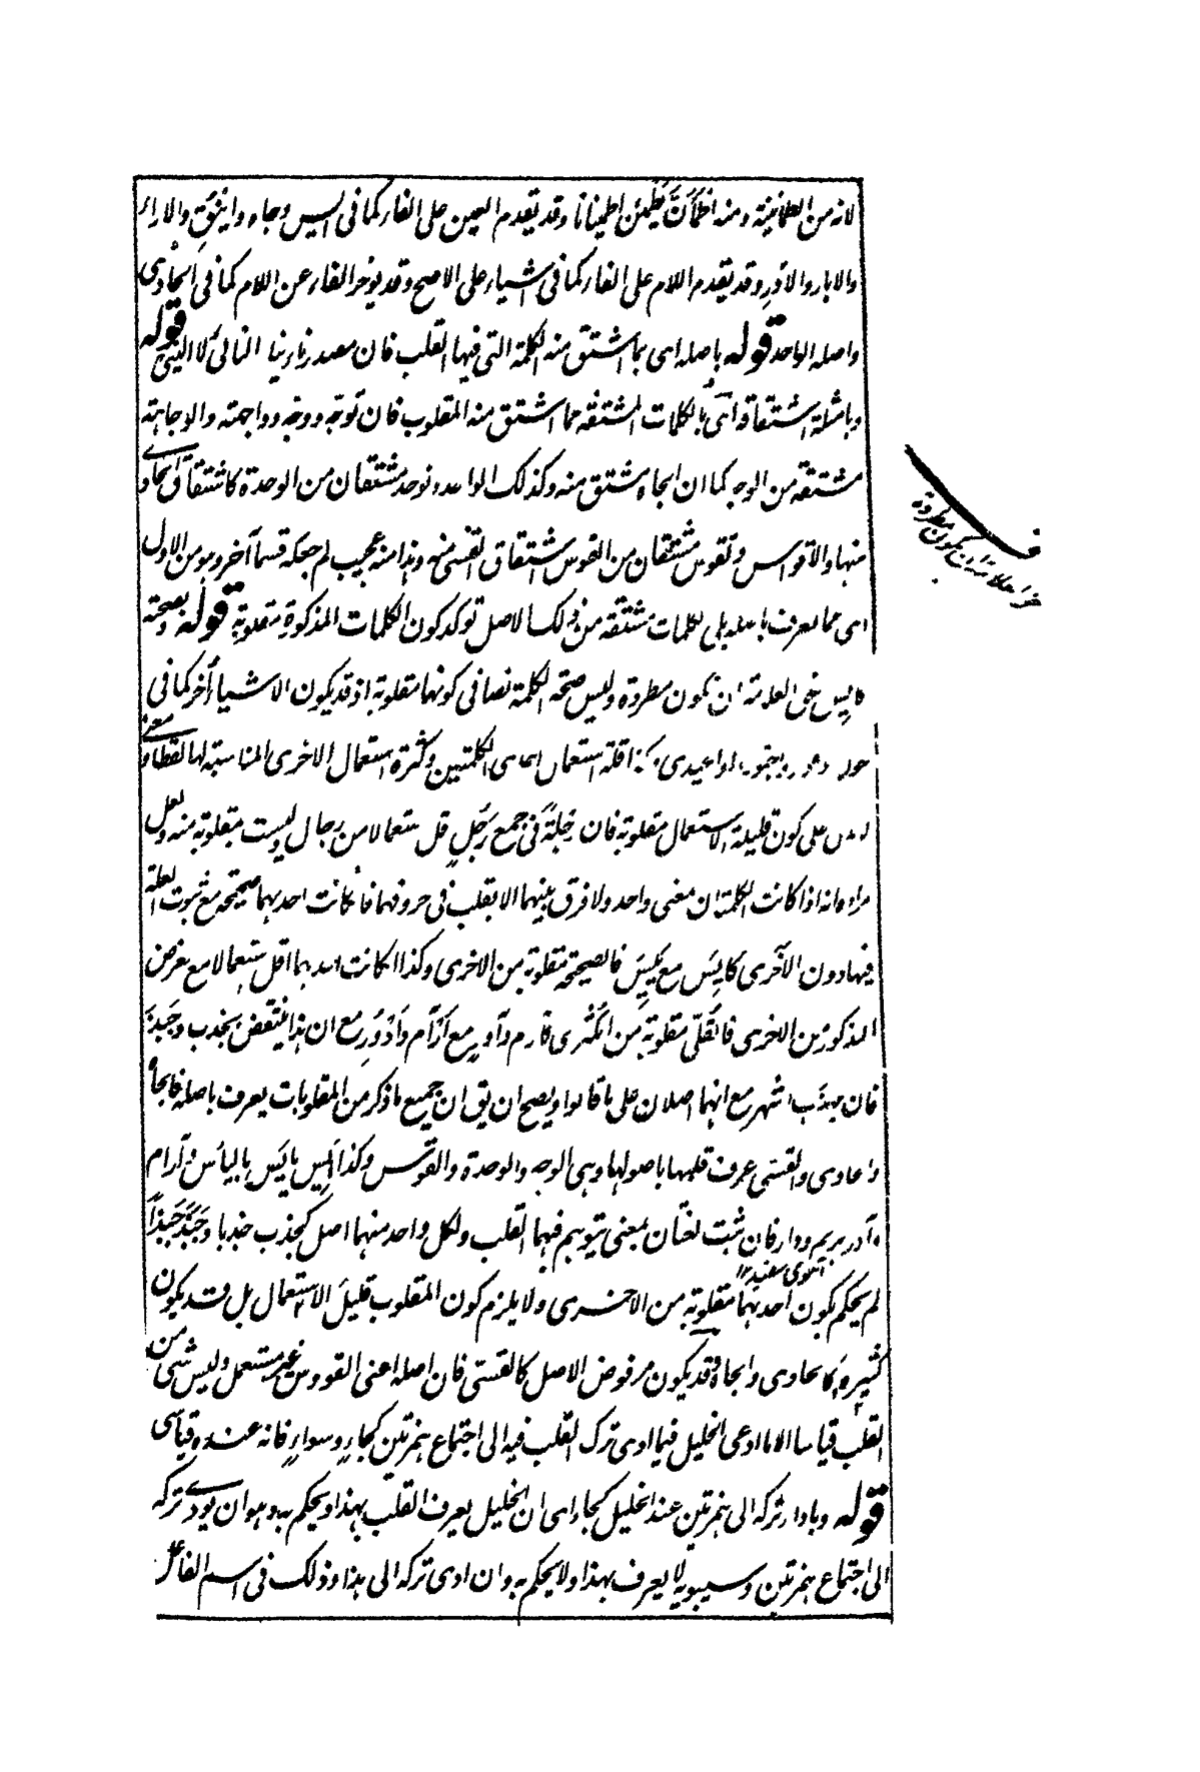 لانه من الطمانينة ومنه اطمأن يطمئن اطمينانا وقد يقدم العين على الفاء كما فى ايس وجاه واينق والاراء
والابار والآدر وقد يقدم اللام على الفاء كما فى اشياء على الاصح وقد يوخر الفاء عن اللام كما فى الحادى
واصله الواحد قوله باصله اى بما اشتق منه الكلمة التى فيها القلب فان مصدر ناء يناء النائى لا النيئ قوله
وبامثلة اشتقاقه اى بالكلمات المشتقة مما اشتق منه المقلوب فان توجه ووجه وواجهته والوجاهة
مشتقة من الوجه كما ان الجاه مشتق منه وكذلك الواحد وتوحد مشتقان من الوحدة كاشتقاق الحادى
منها والاقواس وتقوس مشتقان من القوس اشتقاق القسى منه وهذا منه عجيب لم جعله قسما آخر وهو من الاول
اى مما يعرف باصله بلى الكلمات مشتقة من ذلك الاصل توكد كون الكلمات المذكورة مقلوبة قوله وبصحته
كايس حق العلامة ان تكون مطردة وليس صحة الكلمة نصا فى كونها مقلوبة اذ قد يكون الاشياء أخر كما فى
حول وعور واجتوروا والعيدى وكذا قلة استعمال احدى الكلمتين وكثرة استعمال الاخرى المناسبة لها لفظا ومعنى
لا يدل على كون قليلة الاستعمال مقلوبة فان رجلة فى جمع رجل قل استعمالا من رجال وليست مقلوبة منه ولعل
مراده انه اذا كانت الكلمتان بمعنى واحد ولا فرق بينهما الا بقلب فى حروفهما فان كانت احديهما صحيحة مع ثبوت العلة
فيها دون الآخرى كايس مع يئس فالصحيحة مقلوبة من الاخرى وكذا ان كانت احديهما اقل استعمالا مع فرض
المذكور من الاخرى فالقلى مقلوبة من الكثرى كآرام وآدر مع أرآم وأدور مع ان هذا ينتقض بجذب وجبذ
فان جذب اشهر مع انهما اصلان على ما قالوا ويصح ان يق ان جميع ما ذكر من المقلوبات يعرف باصله فالجاه
والحادى والقسى عرف قلبها باصولها وهى الوجه والوحدة والقوس وكذا ايس يايس باليأس وآرام
وآدر بريم ودار فان ثبت لغتان بمعنى يتوهم فيهما القلب ولكل واحد منهما اصل كجذب جذبا وجبذ جبذا
لم يحكم بكون احديهما مقلوبة من الاخرى ولا يلزم كون المقلوب قليل الاستعمال بل قد يكون
كثيرة كالحادى والجاه وقد يكون مرفوض الاصل كالقسى فان اصله اعنى القووس غير مستعمل وليس شئ من
القلب قياسا الا ما ادعى الخليل فيما ادى ترك القلب فيه الى اجتماع همزتين كجاء وسواء فانه عنده قياسى
قوله وباداء تركه الى همزتين عند الخليل كجاء اى ان الخليل يعرف القلب بهذا ويحكم به وهو ان يودى تركه
الى اجتماع همزتين وسيبويه لا يعرف بهذا ولا يحكم به وان ادى تركه الى هذا وذلك فى اسم الفاعل